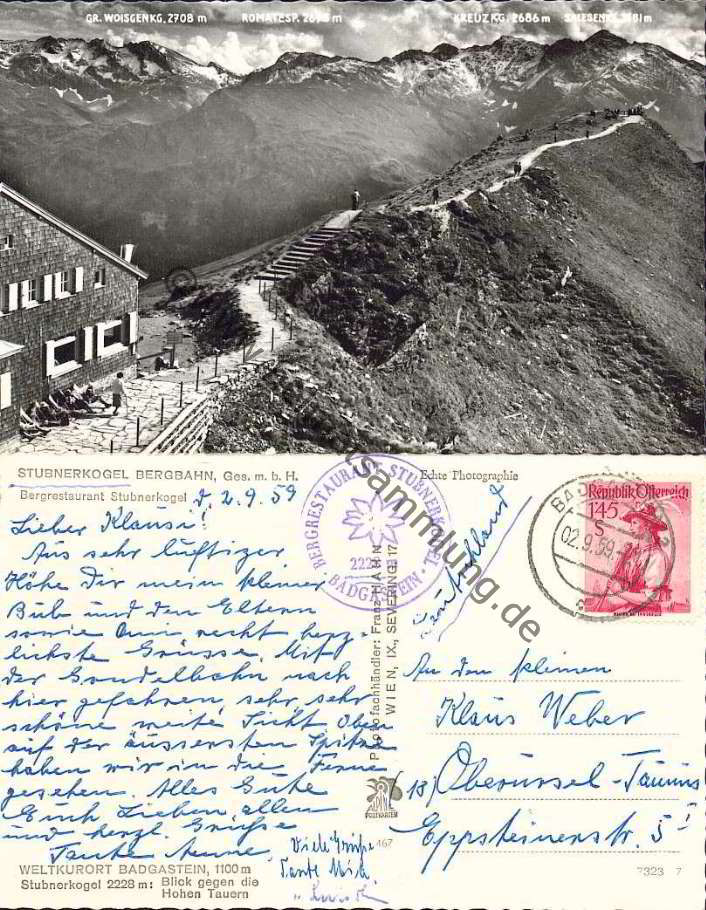 GR. WOISGENKG. 2708 m
ROMATESP. 2696 m
KREUZKG. 2686 m
STUBNERKOGEL BERGBAHN, Ges. m. b. H.
Bergrestaurant Stubnerkogel
d. 2.9.59
Lieber Klausi!
Aus sehr luftiger
Höhe Dir mein kleiner
Bub und den Eltern
sowie Omi recht herz-
lichste Grüsse. Mit
der Gondelbahn nach
hier gefahren, sehr, sehr
schöne weite Sicht. Oben
auf der äussersten Spitze
haben wir in die Ferne
gesehen. Alles Gute
Euch Lieben allen
und herzl. Grüße
Tante
Viele Grüße
Tante
WELTKURORT BADGASTEIN, 1100 m
Stubnerkogel 2228 m: Blick gegen die
Hohen Tauern
BERGRESTAURANT STUBNERKOGEL
BADGASTEIN
Photofachhändler: Franz HAHN
WIEN, IX., SEVERING. 17
POSTKARTEN
167
Echte Photographie
Deutschland
Republik Österreich
1.45
S
02.9.59
An den kleinen
Klaus Weber
(16) Oberursel-Taunus
Eppsteinerstr. 5 I
7323 7
©
(Sammlung.de